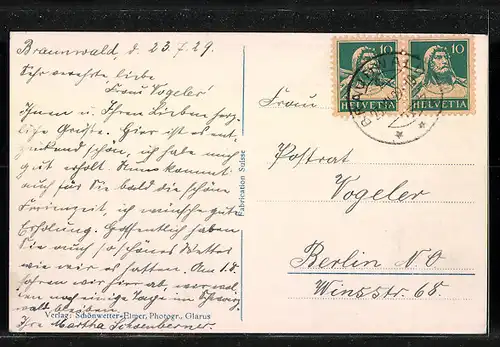 Braunwald, d. 23.7.29.
Sehr verehrte, liebe
Frau Vogeler!
Ihnen u. Ihren Lieben herz-
liche Grüße. Hier ist es ent-
zückend schön, ich habe mich
gut erholt. Nun kommt
auch für Sie bald die schöne
Ferienzeit, ich wünsche gute
Erholung. Hoffentlich haben
Sie auch so schönes Wetter
wie wir es hatten. Am 1.8.
fahren wir hier ab, wir wol-
len noch einige Tage im Schwarz-
wald bleiben.
Ihre Martha Schoenberner
Verlag: Schönwetter-Elmer, Photogr., Glarus
Fabrication Suisse
10 10
HELVETIA HELVETIA
Frau
Postrat
Vogeler
Berlin NO
Winsstr. 68.